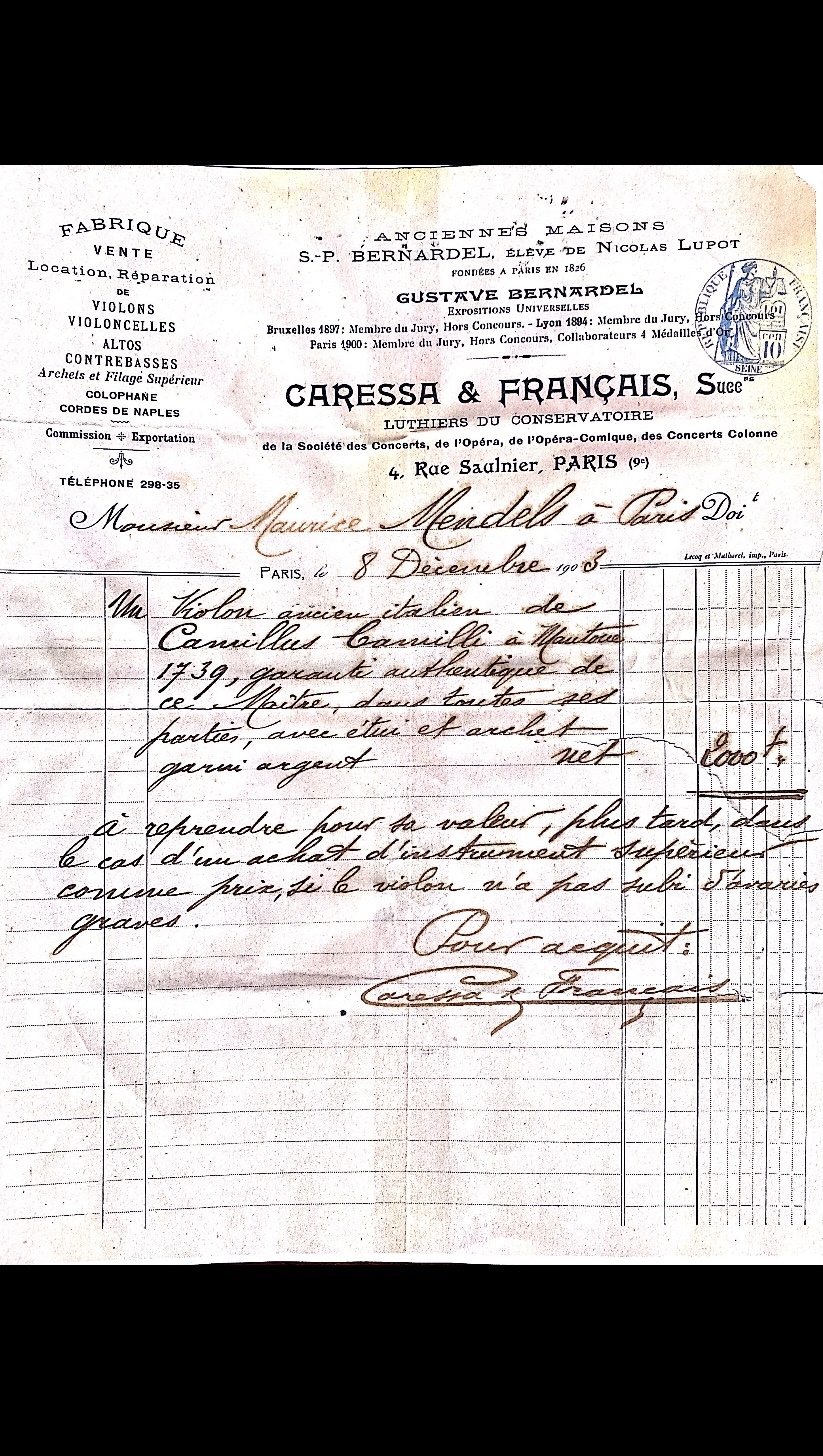 FABRIQUE
VENTE
Location, Réparation
DE
VIOLONS
VIOLONCELLES
ALTOS
CONTREBASSES
Archets et Filage Supérieur
COLOPHANE
CORDES DE NAPLES
Commission + Exportation
TÉLÉPHONE 298-35
ANCIENNES MAISONS
S.-P. BERNARDEL, ÉLÈVE DE NICOLAS LUPOT
FONDÉES A PARIS EN 1826
GUSTAVE BERNARDEL
EXPOSITIONS UNIVERSELLES
Bruxelles 1897: Membre du Jury, Hors Concours. - Lyon 1894: Membre du Jury, Hors Concours
Paris 1900: Membre du Jury, Hors Concours, Collaborateurs 4 Médailles d'Or
CARESSA & FRANÇAIS, Succrs
LUTHIERS DU CONSERVATOIRE
de la Société des Concerts, de l'Opéra, de l'Opéra-Comique, des Concerts Colonne
4, Rue Saulnier, PARIS (9e)
RÉPUBLIQUE FRANÇAISE
10
SEINE
Monsieur Maurice Mendels à Paris Doit
Lecoq et Mathorel, imp., Paris.
PARIS, le 8 Décembre 1903
Un Violon ancien italien de
Camillus Camilli à Mantoue
1739, garanti authentique de
ce Maître, dans toutes ses
parties, avec étui et archet
garni argent net 2000 f.
à reprendre pour sa valeur, plus tard, dans
le cas d'un achat d'instrument supérieur
comme prix, si le violon n'a pas subi d'avaries
graves.
Pour acquit:
Caressa & Français